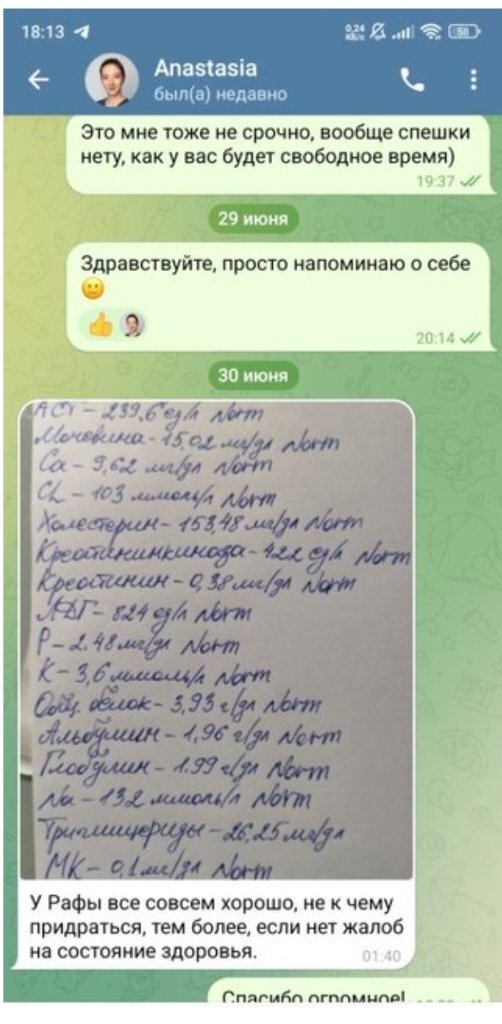 18:13
0,24
КБ/с
58
Anastasia
был(а) недавно
Это мне тоже не срочно, вообще спешки
нету, как у вас будет свободное время)
19:37
29 июня
Здравствуйте, просто напоминаю о себе
🙂
👍
20:14
30 июня
АСТ – 239,6 ед/л Norm
Мочевина – 15,02 мг/дл Norm
Ca – 9,62 мг/дл Norm
CL – 103 ммоль/л Norm
Холестерин – 153,48 мг/дл Norm
Креатининкиноза – 422 ед/л Norm
Креатинин – 0,38 мг/дл Norm
ЛДГ – 824 ед/л Norm
P – 2.48 мг/дл Norm
K – 3,6 ммоль/л Norm
Общ. белок – 3,93 г/дл Norm
Альбумин – 1,96 г/дл Norm
Глобулин – 1.99 г/дл Norm
Na – 132 ммоль/л Norm
Триглицериды – 26,25 мг/дл
МК – 0,1 мг/дл Norm
У Рафы все совсем хорошо, не к чему
придраться, тем более, если нет жалоб
на состояние здоровья.
01:40
Спасибо огромное!